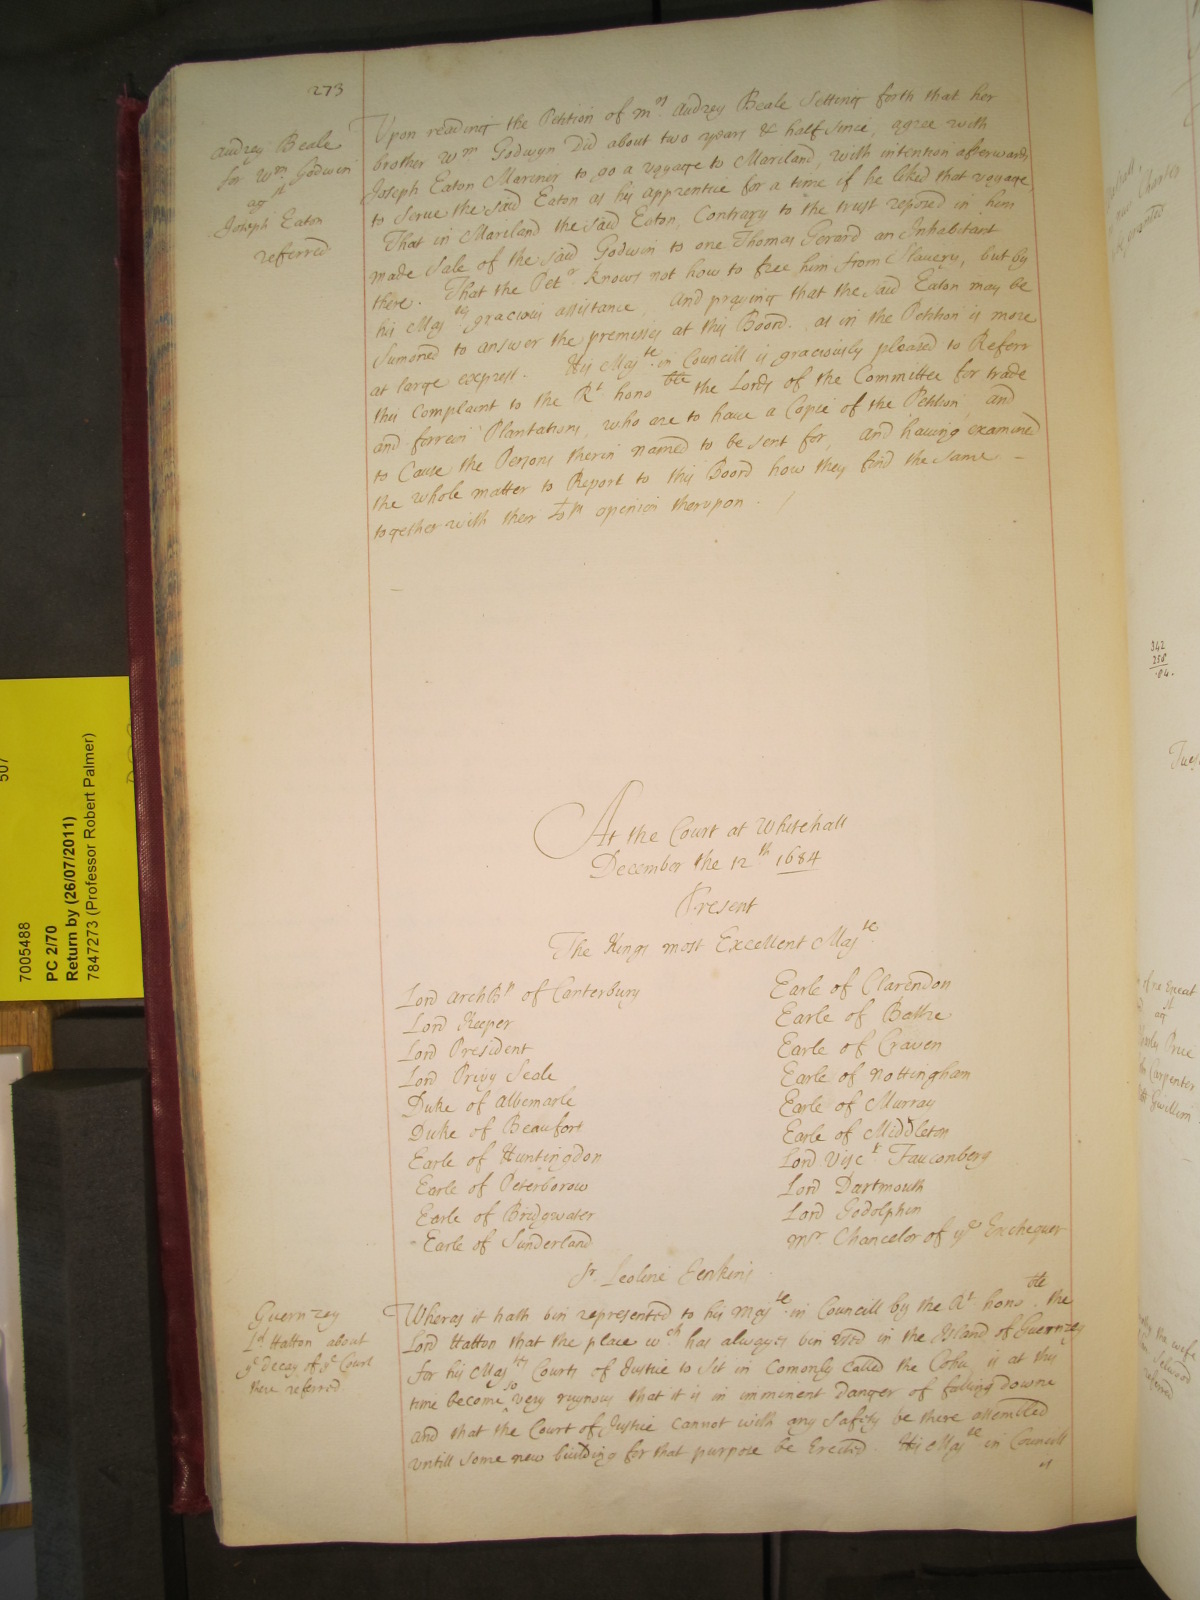 273
Audrey Beale
for Wm Godwin
agst
Joseph Eaton
referred
Upon reading the Petition of mrs Audrey Beale Setting forth that her
brother Wm Godwyn Did about two years & half since, agree with
Joseph Eaton Mariner to go a voyage to Mariland, with intention afterwards
to serve the said Eaton as his apprentice for a time if he liked that voyage,
That in Mariland the said Eaton, Contrary to the trust reposed in him
made Sale of the said Godwin to one Thomas Gerard an Inhabitant
there. That the Petr knows not how to free him from Slavery, but by
his Majtys gracious assistance, And praying that the said Eaton may be
Sumoned to answer the premisses at this Board. as in the Petition is more
at large exprest. His Majte in Councill is graciously pleased to Referr
this Complaint to the Rt honoble the Lords of the Committee for trade
and forrein Plantations, who are to have a Copie of the Petition, and
to Cause the Persons therin named to be sent for, and having examined
the whole matter to Report to this Board how they find the same -
together with ther Lops opinion therupon. /
At the Court at Whitehall
December the 12th 1684
Present
The Kings most Excellent Majte
Lord ArchBp of Canterbury
Lord Keeper
Lord President
Lord Privy Seale
Duke of Albemarle
Duke of Beaufort
Earle of Huntingdon
Earle of Peterborow
Earle of Bridgwater
Earle of Sunderland
Earle of Clarendon
Earle of Bathe
Earle of Craven
Earle of Nottingham
Earle of Murray
Earle of Middleton
Lord Visct Fauconberg
Lord Dartmouth
Lord Godolphin
Mr Chancelor of ye Exchequer
Sr. Leoline Jenkins
Guernzey
Ld Hatton about
ye decay of ye Court
there referred
Wheras it hath bin represented to his Majte in Councill by the Rt honoble the
Lord Hatton that the place wch has alwayes bin used in the Island of Guernzey
for his Majtys Courts of Justice to sit in Comonly called the Cohu, is at this
time become so very ruynous that it is in imminent danger of falling downe
and that the Court of Justice cannot with any safety be there assembled
untill some new building for that purpose be Erected. His Majte in Councill
7005488
PC 2/70
Return by (26/07/2011)
7847273 (Professor Robert Palmer)
507
342
258
.84.